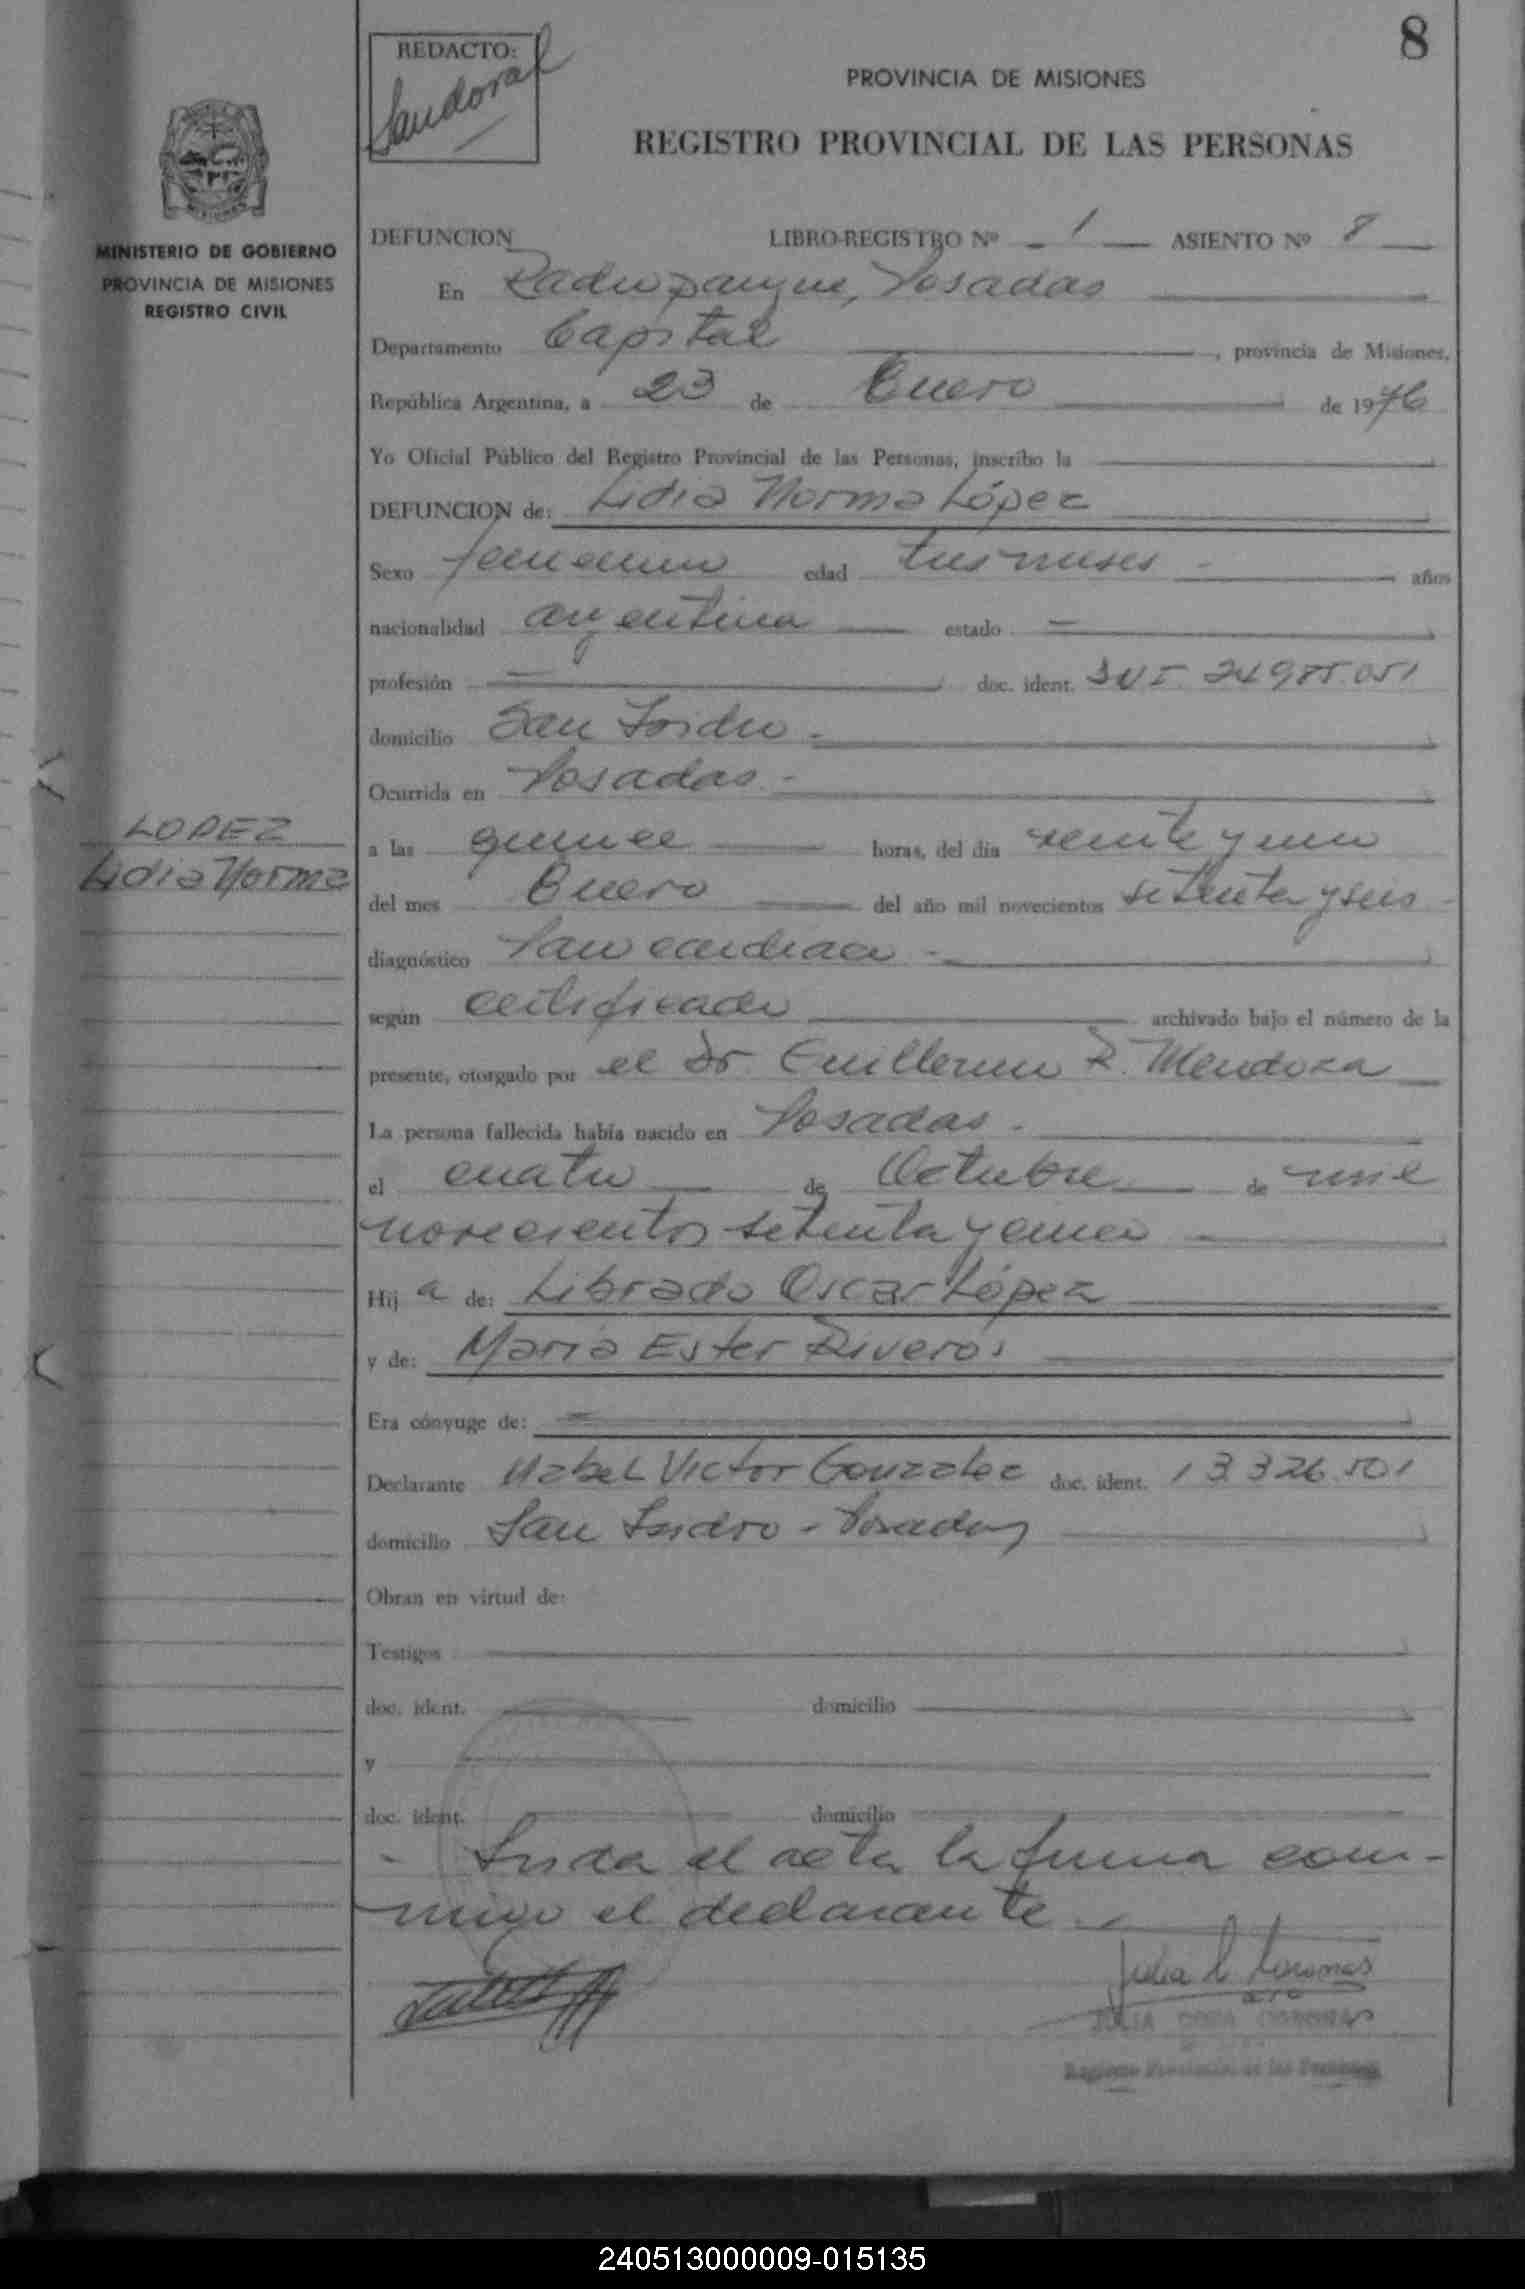 8
REDACTO:
Sandoval
PROVINCIA DE MISIONES
REGISTRO PROVINCIAL DE LAS PERSONAS
MINISTERIO DE GOBIERNO
PROVINCIA DE MISIONES
REGISTRO CIVIL
DEFUNCION LIBRO-REGISTRO Nº 1 ASIENTO Nº 8
En Radioparque, Posadas
Departamento Capital, provincia de Misiones,
República Argentina, a 23 de Enero de 1976
Yo Oficial Público del Registro Provincial de las Personas, inscribo la
DEFUNCION de: Lidia Norma López
Sexo femenino edad tres meses - años
nacionalidad argentina estado -
profesión - doc. ident. 24.985.051
domicilio San Isidro -
Ocurrida en Posadas -
a las quince horas, del día veinte y uno
del mes Enero del año mil novecientos setenta y seis -
diagnóstico Paro cardiaco -
según certificado archivado bajo el número de la
presente, otorgado por el Dr. Guillermo R. Mendoza
La persona fallecida había nacido en Posadas -
el cuatro de Octubre de mil
novecientos setenta y cinco
Hij a de: Librado Oscar López
y de: María Ester Riveros
Era cónyuge de: -
Declarante Victor Gonzalez doc. ident. 13.326.501
domicilio San Isidro - Posadas
Obran en virtud de:
Testigos
doc. ident. domicilio
y
doc. ident. domicilio
- Leida el acta la firma con-
migo el declarante -
LOPEZ
Lidia Norma
JULIA CORONAS
Registro Provincial de las Personas
240513000009-015135